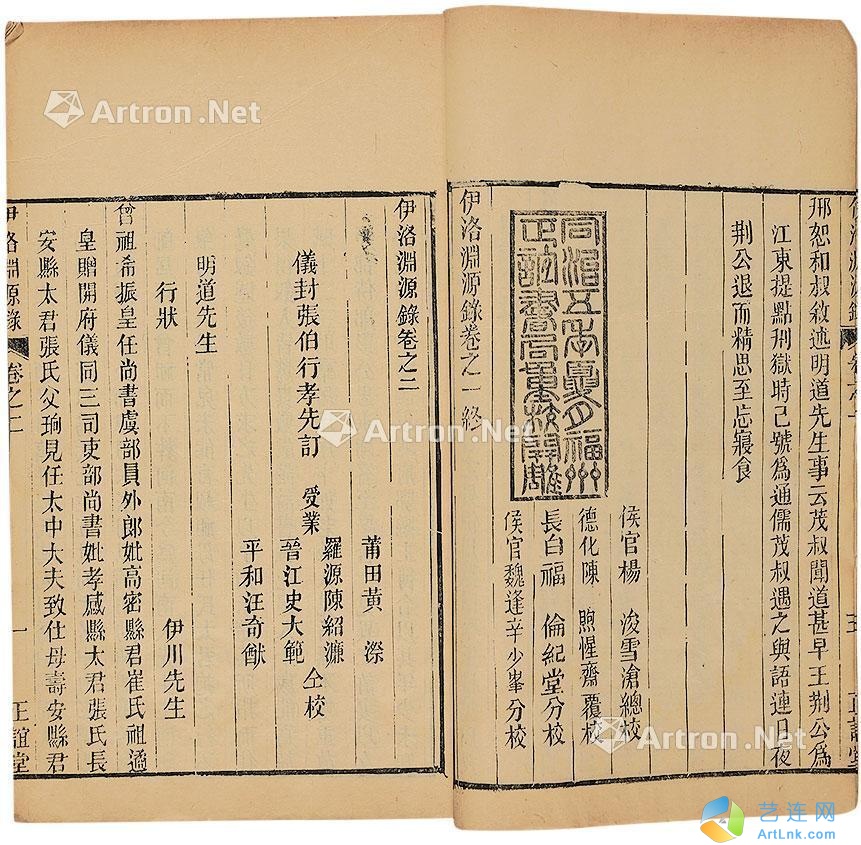 邢恕和叔敘述明道先生事云茂叔聞道甚早王荊公爲
江東提點刑獄時已號爲通儒茂叔遇之與語連日夜
荊公退而精思至忘寢食
同治五年夏月福州
正誼書局重校開雕
侯官楊 浚雪滄總校
德化陳 煦惺齋覆校
長白福 倫紀堂分校
侯官魏逢辛少峯分校
伊洛淵源錄卷之一終
伊洛淵源錄卷之二
儀封張伯行孝先訂 受業
莆田黃 深
羅源陳紹濂
晉江史大範
平和汪奇猷
仝校
明道先生
行狀 伊川先生
曾祖希振皇任尚書虞部員外郎妣高密縣君崔氏祖遹
皇贈開府儀同三司吏部尚書妣孝感縣太君張氏長
安縣太君張氏父珦見任太中大夫致仕母壽安縣君
伊洛淵源錄 卷之二 一 正誼堂
Artron.Net
Artron.Net
Artron.Net
Artron.Net
艺连网
ArtLnk.com